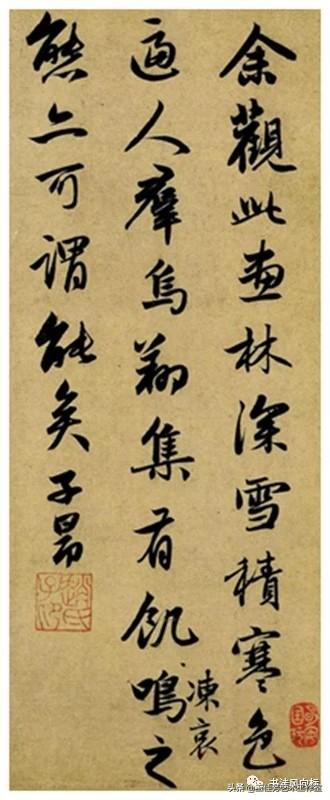 余觀此畫林深雪積寒色
逼人羣烏翔集有飢凍哀鳴之
態亦可謂能矣子昂
趙氏子昂
书法风向标